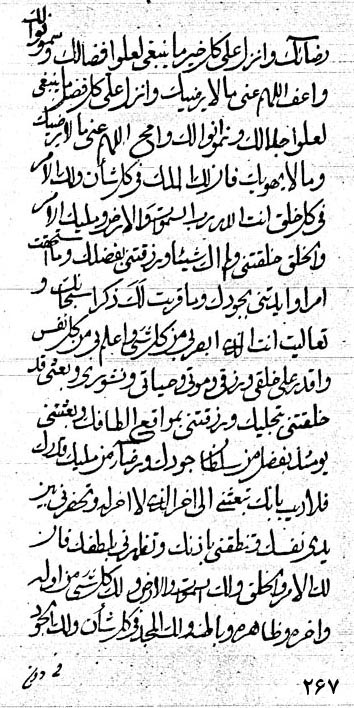 رضائك وانزل على كل خير ما ينبغي لعلوا فضالك وسموا نوالك
واعف اللهم عني ما لا يرضيك وانزل على كل فضل ينبغي
لعلوا جلالك وسموا نوالك وامح اللهم عني ما لا يرضيك
وما لا يهويك فان لك الملك في كل شأن ولك الامر
في كل خلق انت الله رب السموات والارض ومليك الامر
والخلق خلقتني ولم اك شيئا ورزقتني بفضلك وما استحققت
امرا وايدتني بجودك وما قربت لك ذكرا سبحانك و
تعاليت انت الله اقرب من كل شيء واعلم بي من كل نفس
واقدر على خلقي ورزقي وموتي وحياتي ونشوري وبعثي قد
خلقتني بتجليك ورزقتني بمواقع الطافك وبعثتني
بفضل من سلطان جودك ورضاء من مليك
فلا ريب بانك تبعثني الى اخر الذي لا اخر له وتحضرني بين
يدي نفسك وتنطقني باذنك وتظهرني بلطفك فان
لك الامر والخلق ولك السموات والارض ولك كل شيء من اوله
واخره وظاهره وباطنه ولك المجد في كل شأن ولك الجود
٢٦٧